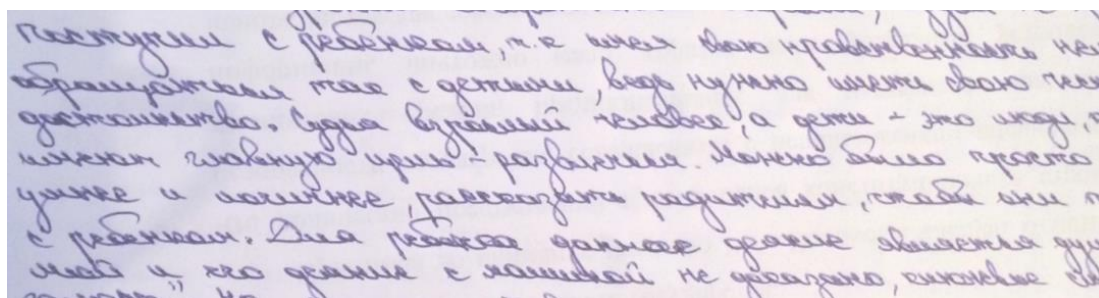 поступил с ребёнком, т.е имея свою нравственность
обращаться так с детьми, ведь нужно иметь свою
достоинство. Судья взрослый человек, а дети - это люди,
имеют главную цель - развлечения. Можно было просто
умнее и логичнее, рассказать родителям, чтобы они
с ребёнком. Для ребёнка данное деяние является
и что деяние с машиной не доказано,